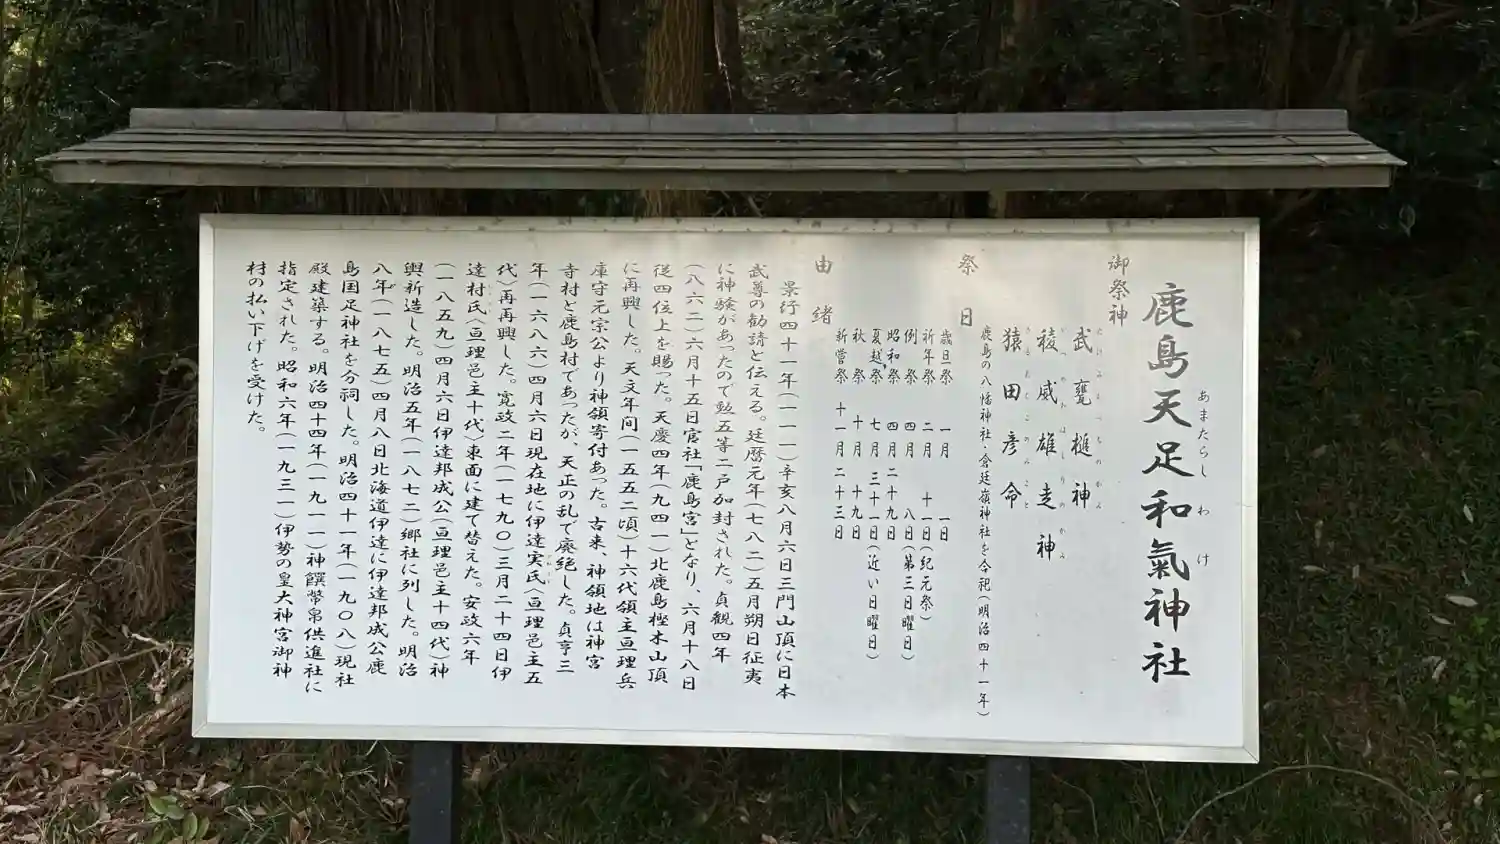 鹿島天足和氣神社
あまたらし わ け
御祭神
武甕槌神
たけみかつちのかみ
稜威雄走神
いつのおはしりのかみ
猿田彦命
さるたひこのみこと
鹿島の八幡神社・倉廷嶺神社を合祀(明治四十一年)
祭日
歳旦祭 一月 一日
祈年祭 二月 十一日(紀元祭)
例祭 四月 八日(第三日曜日)
昭和祭 四月二十九日
夏越祭 七月 三十一日(近い日曜日)
秋祭 十月 十九日
新嘗祭 十一月二十三日
由緒
景行四十一年(一一一)辛亥八月六日三門山頂に日本
武尊の勧請と伝える。廷暦元年(七八二)五月朔日征夷
に神験があったので勲五等二戸加封された。貞観四年
(八六二)六月十五日官社「鹿島宮」となり、六月十八日
従四位上を賜った。天慶四年(九四一)北鹿島樫木山頂
に再興した。天文年間(一五五二頃)十六代領主亘理兵
庫守元宗公より神領寄付あった。古来、神領地は神宮
寺村と鹿島村であったが、天正の乱で廃絶した。貞亨三
年(一六八六)四月六日現在地に伊達実氏〈亘理邑主五
代〉再再興した。寛政二年(一七九〇)三月二十四日伊
達村氏〈亘理邑主十代〉東面に建て替えた。安政六年
(一八五九)四月六日伊達邦成公(亘理邑主十四代)神
輿新造した。明治五年(一八七二)郷社に列した。明治
八年(一八七五)四月八日北海道伊達に伊達邦成公鹿
島国足神社を分祠した。明治四十一年(一九〇八)現社
殿建築する。明治四十四年(一九一一)神饌幣帛供進社に
指定された。昭和六年(一九三一)伊勢の皇大神宮御神
村の払い下げを受けた。